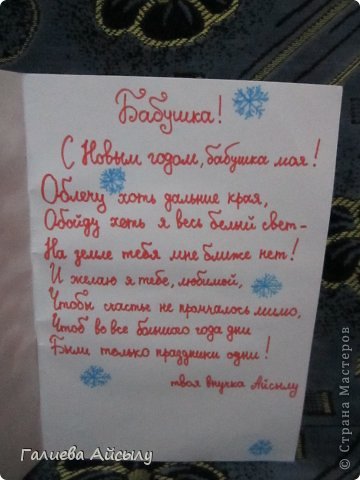 Бабушка!
С Новым годом, бабушка моя!
Облечу хоть дальние края,
Обойду хоть я весь белый свет-
На земле тебя мне ближе нет!
И желаю я тебе, любимой,
Чтобы счастье не промчалось мимо,
Чтоб во все большого года дни
Были только праздники одни!
твоя внучка Айсылу
Галиева Айсылу
© Страна Мастеров